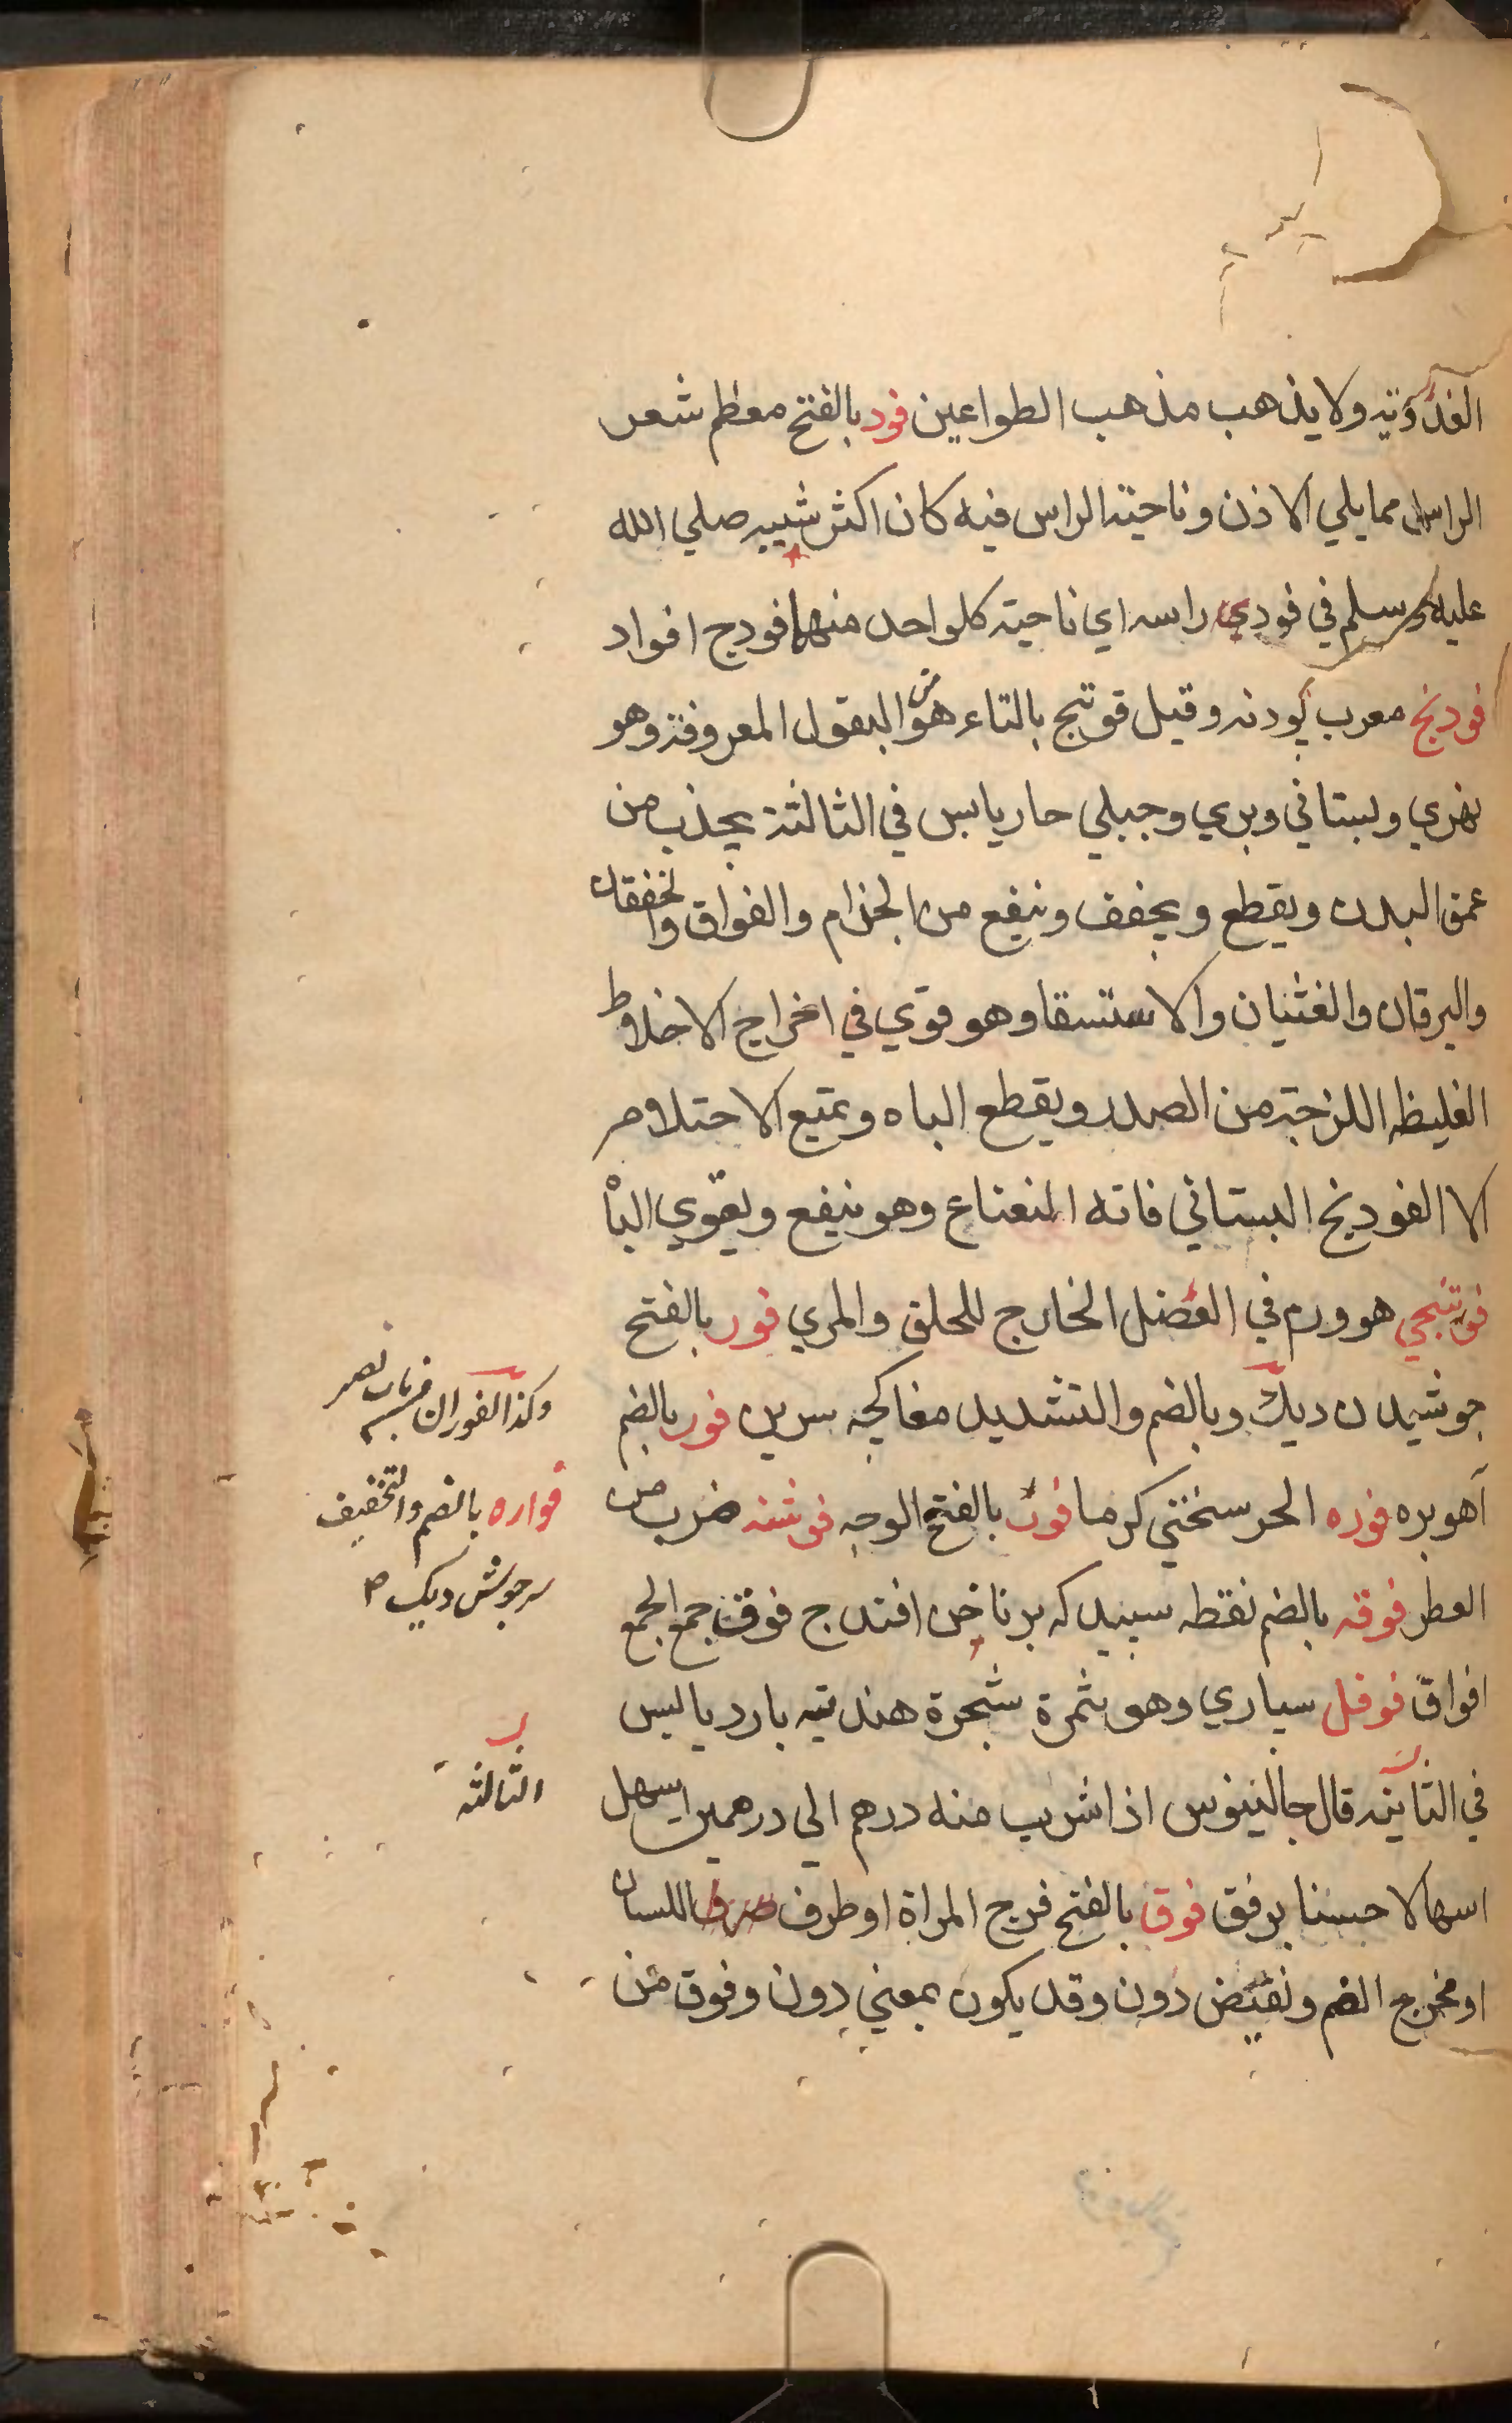 الغدودية ولا يذهب مذهب الطواعين فود بالفتح معظم شعر
الراس مما يلي الاذن وناحية الراس فيه كان اكثر شيبه صلي الله
عليه وسلم في فودي راسه اي ناحية كلواحد منهما فود ج افواد
فودنج معرب پودنه وقيل فوتنج بالتاء هو من البقول المعروفة وهو
نهري وبستاني وبري وجبلي حار يابس في الثالثة يجذب من
عمق البدن ويقطع ويجفف وينفع من الجذام والفواق والخفقان
واليرقان والغثيان والاستسقا وهو قوي في اخراج الاخلاط
الغليظه اللزجة من الصدر ويقطع الباه ويمنع الاحتلام
الا الفودنج البستاني فانه النعناع وهو ينفع ويقوي الباْ
فوتنجي هو ورم في العضل الخارج للحلق والمري فور بالفتح
جوشيدن ديك وبالضم والتشديد مغاكچه سرين فور بالضم
آهوبره فوره الحر سختي كرما فور بالفتح الوجه فوشنه ضرب من
العطر فوقه بالضم نقطه سپيد كه بر ناخن افتد ج فوق جمع الجمع
افواق فوفل سپاري وهو ثمرة شجرة هندية بارد يابس
في الثانية قال جالينوس اذا شرب منه درهم الي درهمين اسهل
اسهالا حسنا برفق فوق بالفتح فرج المراة او طرف اللسان
او مخرج الفم ونقيض دون وقد يكون بمعني دون وفوق من
وكذا الفوران من باب نصر
فواره بالضم والتخفيف
سرجوش ديك
الثالثه